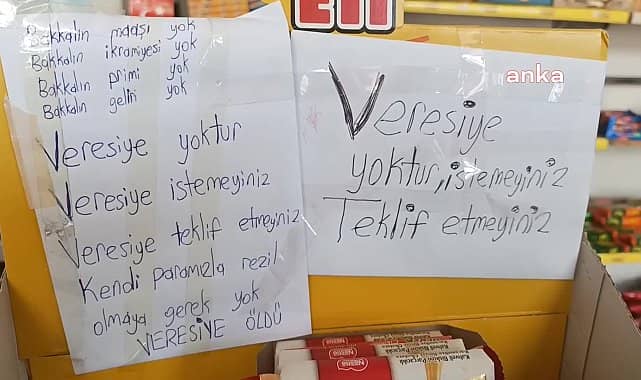 ETİ
Bakkalın maaşı yok
Bakkalın ikramiyesi yok
Bakkalın primi yok
Bakkalın geliri yok
Veresiye yoktur
Veresiye istemeyiniz
Veresiye teklif etmeyiniz
Kendi paramızla rezil
olmaya gerek yok
VERESİYE ÖLDÜ
anka
Veresiye
yoktur, istemeyiniz
Teklif etmeyiniz
Nestlé
Nestlé